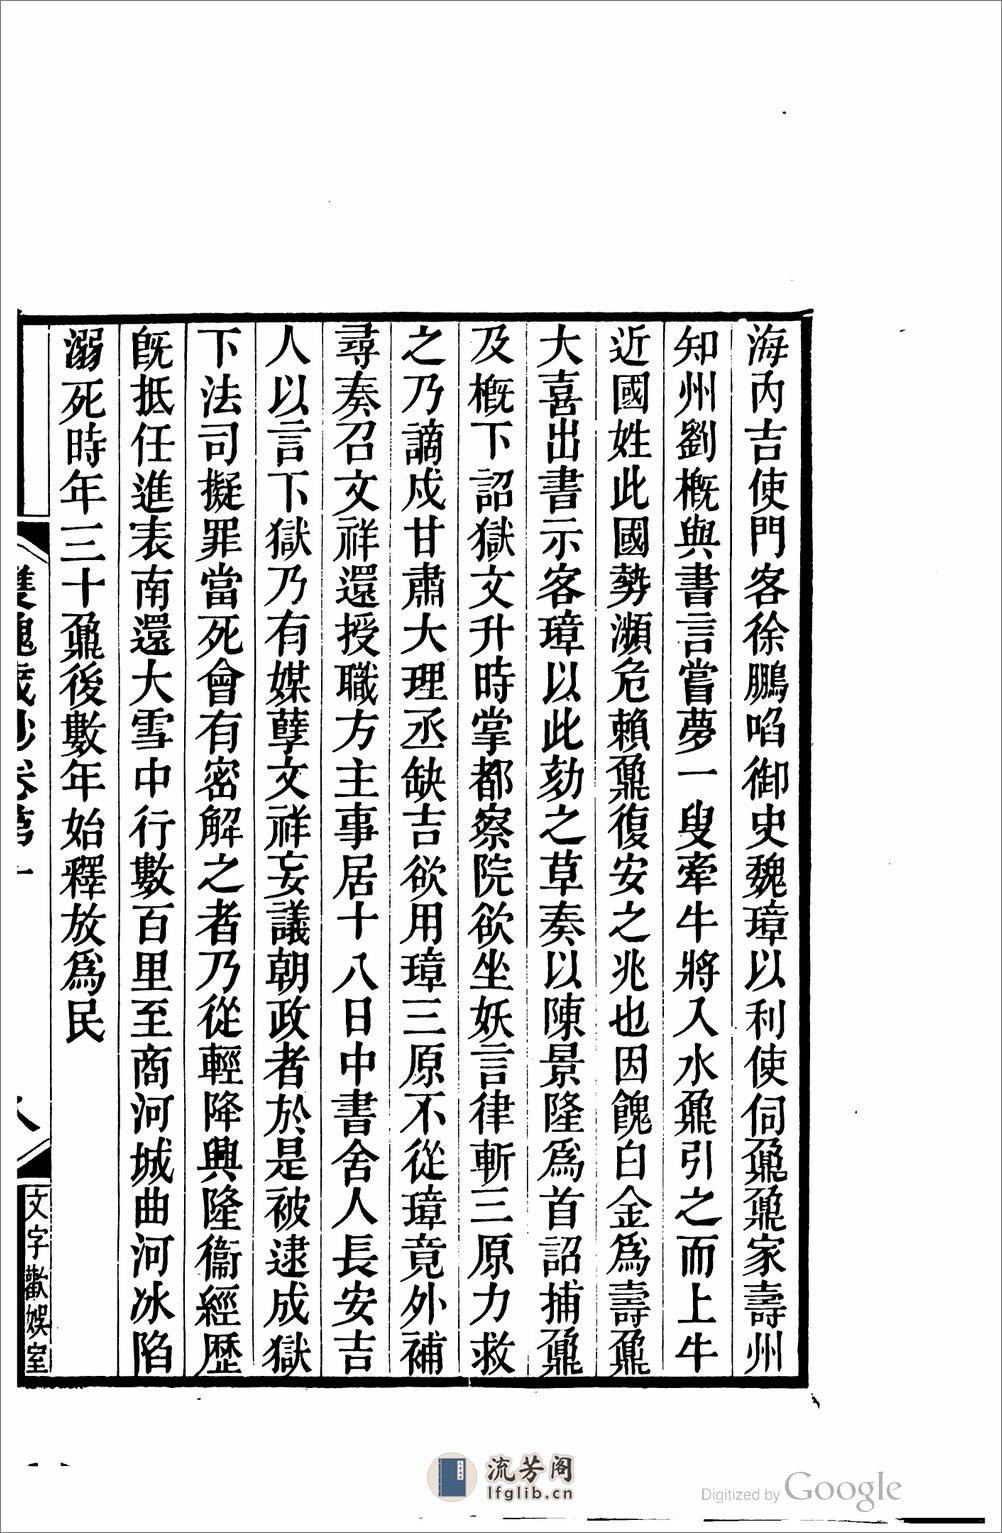 海內吉使門客徐鵬啗御史魏璋以利使伺鼐鼐家壽州
知州劉概與書言嘗夢一叟牽牛將入水鼐引之而上牛
近國姓此國勢瀕危賴鼐復安之兆也因餽白金爲壽鼐
大喜出書示客璋以此劾之草奏以陳景隆爲首詔捕鼐
及概下詔獄文升時掌都察院欲坐妖言律斬三原力救
之乃謫戍甘肅大理丞缺吉欲用璋三原不從璋竟外補
尋奏召文祥還授職方主事居十八日中書舍人長安吉
人以言下獄乃有媒孽文祥妄議朝政者於是被逮成獄
下法司擬罪當死會有密解之者乃從輕降興隆衞經歷
既抵任進表南還大雪中行數百里至商河城曲河冰陷
溺死時年三十鼐後數年始釋放爲民
雙槐歲鈔卷第十
八
文字歡娛室
流芳阁
lfglib.cn
Digitized by Google